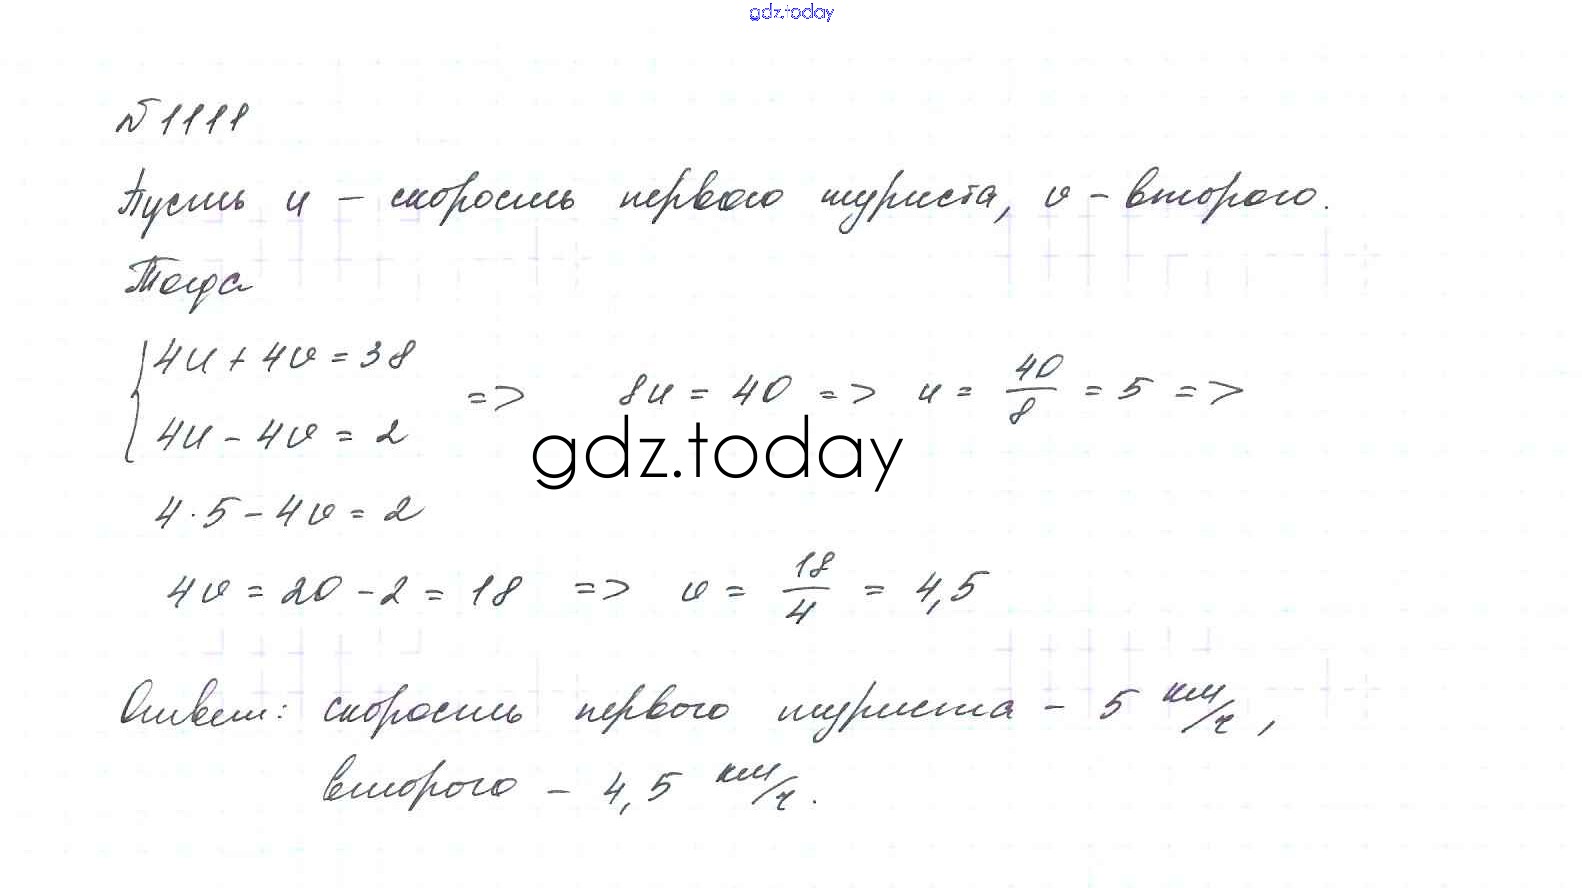 gdz.today
№1111
Пусть u – скорость первого туриста, v – второго.
Тогда
4u + 4v = 38
4u – 4v = 2
=> 8u = 40 => u = 40/8 = 5 =>
gdz.today
4·5 – 4v = 2
4v = 20 – 2 = 18 => v = 18/4 = 4,5
Ответ: скорость первого туриста – 5 км/ч,
второго – 4,5 км/ч.